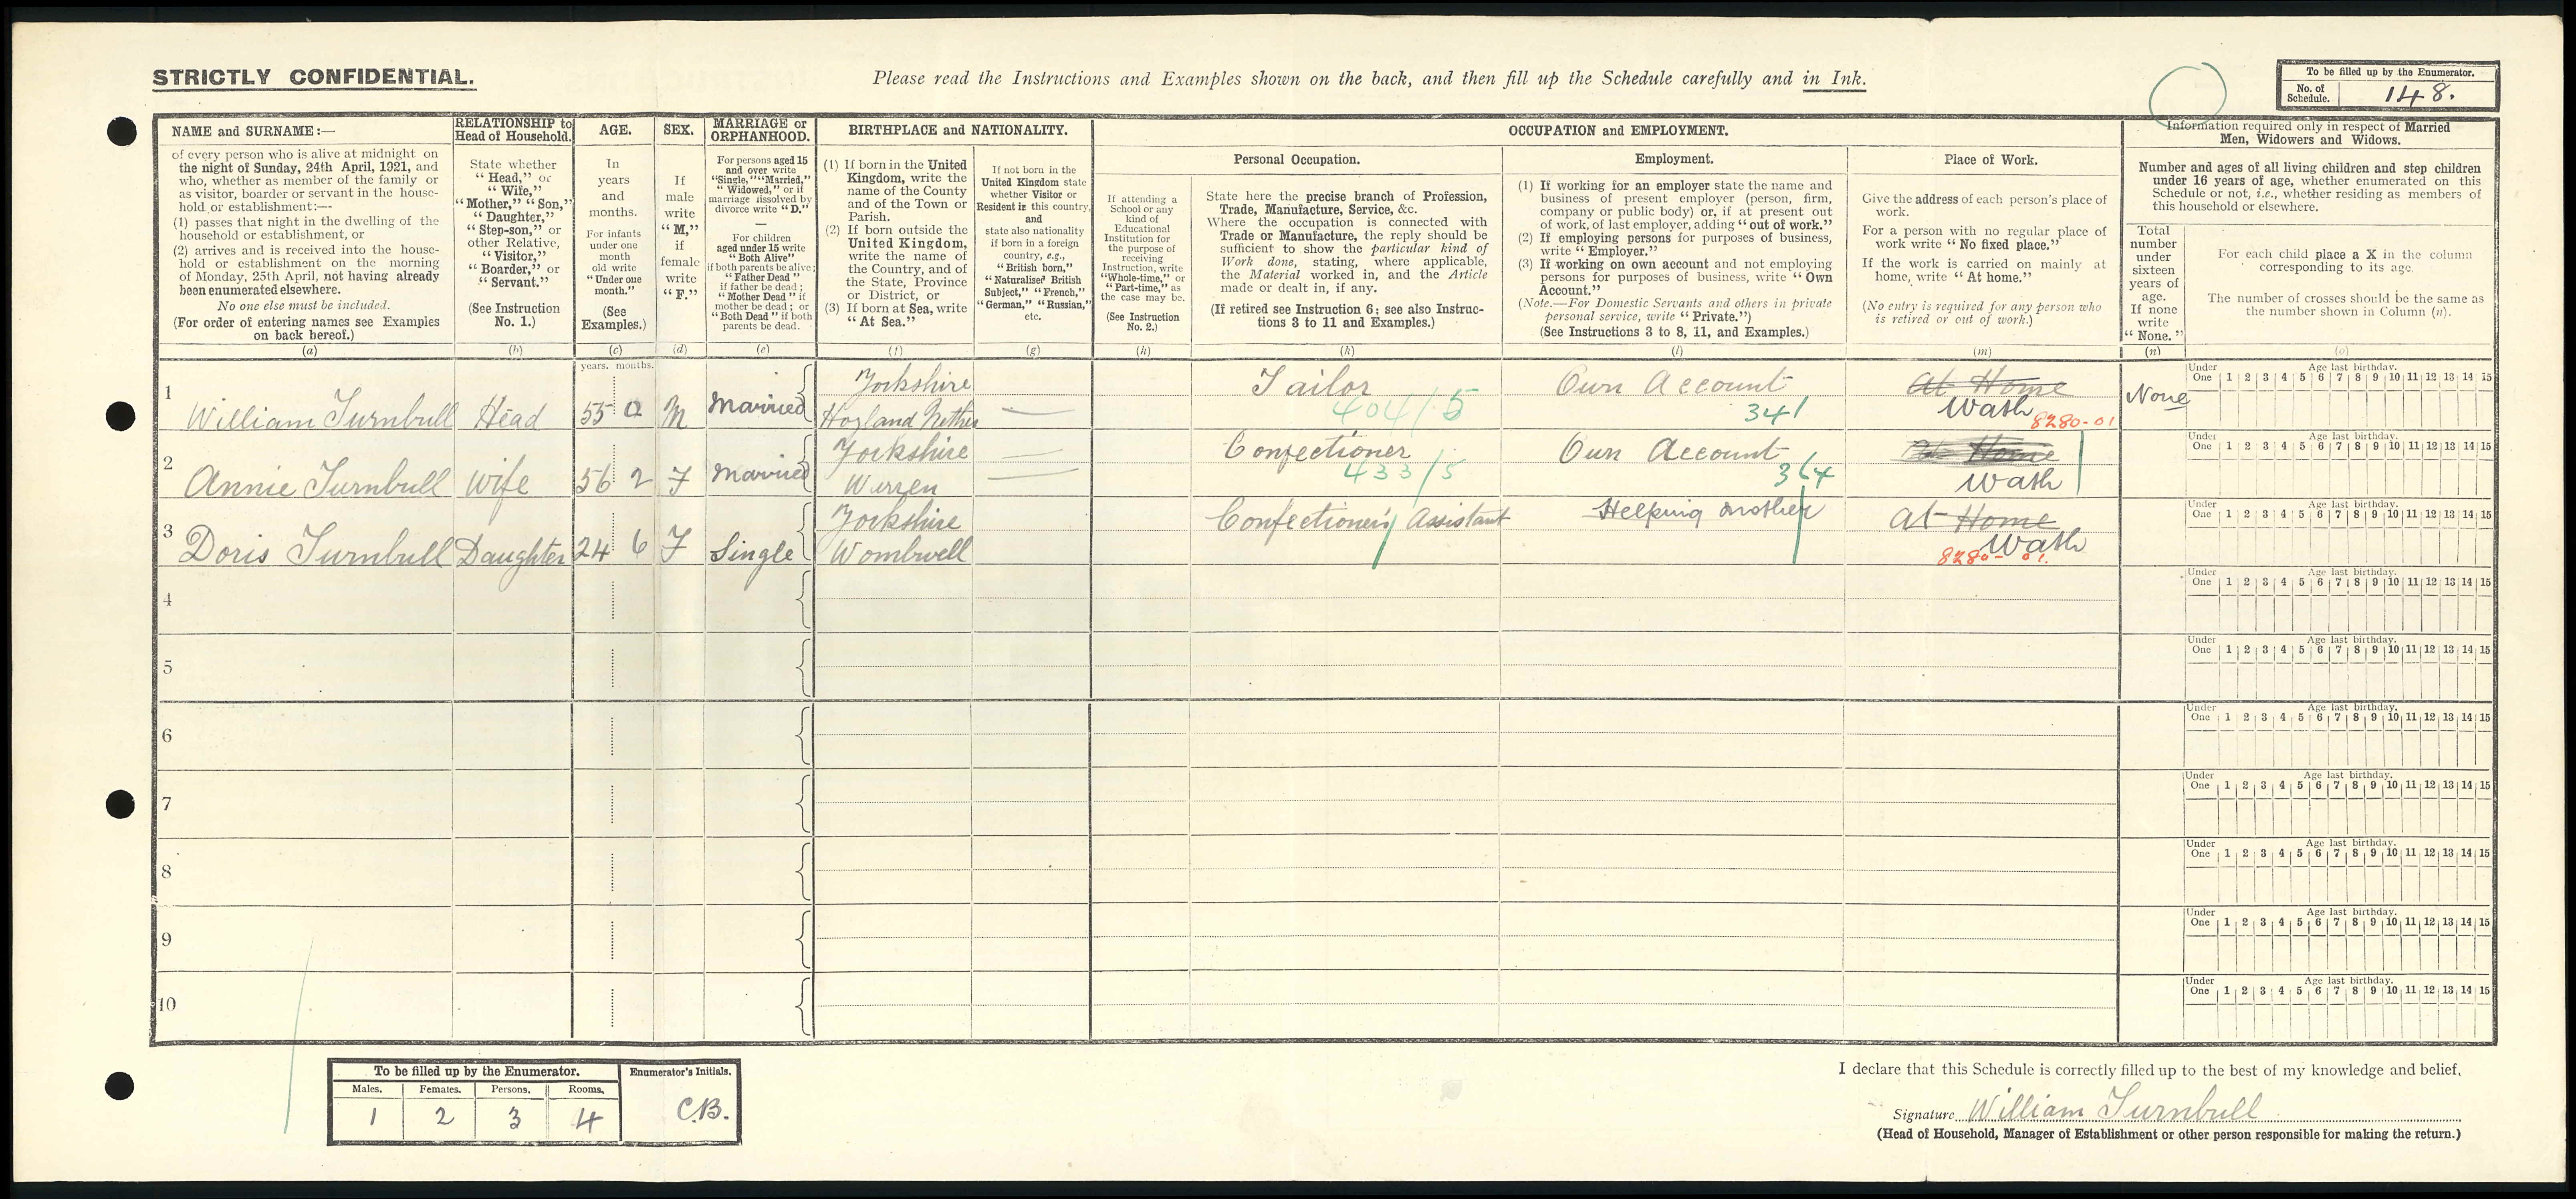 STRICTLY CONFIDENTIAL.
Please read the Instructions and Examples shown on the back, and then fill up the Schedule carefully and in Ink.
To be filled up by the Enumerator.
No. of Schedule. 148.
NAME and SURNAME:—
of every person who is alive at midnight on
the night of Sunday, 24th April, 1921, and
who, whether as member of the family or
as visitor, boarder or servant in the house-
hold or establishment:—
(1) passes that night in the dwelling of the
household or establishment, or
(2) arrives and is received into the house-
hold or establishment on the morning
of Monday, 25th April, not having already
been enumerated elsewhere.
No one else must be included.
(For order of entering names see Examples
on back hereof.)
(a)
RELATIONSHIP to
Head of Household.
State whether
"Head," or
"Wife,"
"Mother," "Son,"
"Daughter,"
"Step-son," or
other Relative,
"Visitor,"
"Boarder," or
"Servant."
(See Instruction
No. 1.)
(b)
AGE.
In
years
and
months.
For infants
under one
month
old write
"Under one
month."
(See
Examples.)
(c)
SEX.
If
male
write
"M,"
if
female
write
"F."
(d)
MARRIAGE or
ORPHANHOOD.
For persons aged 15
and over write
"Single," "Married,"
"Widowed," or if
marriage dissolved by
divorce write "D."
—
For children
aged under 15 write
"Both Alive"
if both parents be alive;
"Father Dead"
if father be dead;
"Mother Dead" if
mother be dead; or
"Both Dead" if both
parents be dead.
(e)
BIRTHPLACE and NATIONALITY.
(1) If born in the United
Kingdom, write the
name of the County
and of the Town or
Parish.
(2) If born outside the
United Kingdom,
write the name of
the Country, and of
the State, Province
or District, or
(3) If born at Sea, write
"At Sea."
(f)
If not born in the
United Kingdom state
whether Visitor or
Resident in this country,
and
state also nationality
if born in a foreign
country, e.g.,
"British born,"
"Naturalised British
Subject," "French,"
"German," "Russian,"
etc.
(g)
OCCUPATION and EMPLOYMENT.
If attending a
School or any
kind of
Educational
Institution for
the purpose of
receiving
Instruction, write
"Whole-time," or
"Part-time," as
the case may be.
(See Instruction
No. 2.)
(h)
Personal Occupation.
State here the precise branch of Profession,
Trade, Manufacture, Service, &c.
Where the occupation is connected with
Trade or Manufacture, the reply should be
sufficient to show the particular kind of
Work done, stating, where applicable,
the Material worked in, and the Article
made or dealt in, if any.
(If retired see Instruction 6; see also Instruc-
tions 3 to 11 and Examples.)
(k)
Employment.
(1) If working for an employer state the name and
business of present employer (person, firm,
company or public body) or, if at present out
of work, of last employer, adding "out of work."
(2) If employing persons for purposes of business,
write "Employer."
(3) If working on own account and not employing
persons for purposes of business, write "Own
Account."
(Note.—For Domestic Servants and others in private
personal service, write "Private.")
(See Instructions 3 to 8, 11, and Examples.)
(l)
Place of Work.
Give the address of each person's place of
work.
For a person with no regular place of
work write "No fixed place."
If the work is carried on mainly at
home, write "At home."
(No entry is required for any person who
is retired or out of work.)
(m)
Information required only in respect of Married
Men, Widowers and Widows.
Number and ages of all living children and step children
under 16 years of age, whether enumerated on this
Schedule or not, i.e., whether residing as members of
this household or elsewhere.
Total
number
under
sixteen
years of
age.
If none
write
"None."
(n)
For each child place a X in the column
corresponding to its age.
The number of crosses should be the same as
the number shown in Column (n).
(o)
years. months.
1 William Turnbull Head 55 0 M Married Yorkshire Hoyland Nether — Tailor 404/5 Own Account 341 At Home Wath 8280-01 None
Under One Age last birthday. 1 2 3 4 5 6 7 8 9 10 11 12 13 14 15
2 Annie Turnbull Wife 56 2 F Married Yorkshire — — Confectioner 433/5 Own Account 364 At Home Wath
Under One Age last birthday. 1 2 3 4 5 6 7 8 9 10 11 12 13 14 15
3 Doris Turnbull Daughter 24 6 F Single Yorkshire Wombwell Confectioner's Assistant Helping Mother At Home Wath 8280-01.
Under One Age last birthday. 1 2 3 4 5 6 7 8 9 10 11 12 13 14 15
4
Under One Age last birthday. 1 2 3 4 5 6 7 8 9 10 11 12 13 14 15
5
Under One Age last birthday. 1 2 3 4 5 6 7 8 9 10 11 12 13 14 15
6
Under One Age last birthday. 1 2 3 4 5 6 7 8 9 10 11 12 13 14 15
7
Under One Age last birthday. 1 2 3 4 5 6 7 8 9 10 11 12 13 14 15
8
Under One Age last birthday. 1 2 3 4 5 6 7 8 9 10 11 12 13 14 15
9
Under One Age last birthday. 1 2 3 4 5 6 7 8 9 10 11 12 13 14 15
10
Under One Age last birthday. 1 2 3 4 5 6 7 8 9 10 11 12 13 14 15
To be filled up by the Enumerator. Enumerator's Initials.
Males. Females. Persons. Rooms.
1 2 3 4 C.B.
I declare that this Schedule is correctly filled up to the best of my knowledge and belief.
Signature William Turnbull
(Head of Household, Manager of Establishment or other person responsible for making the return.)